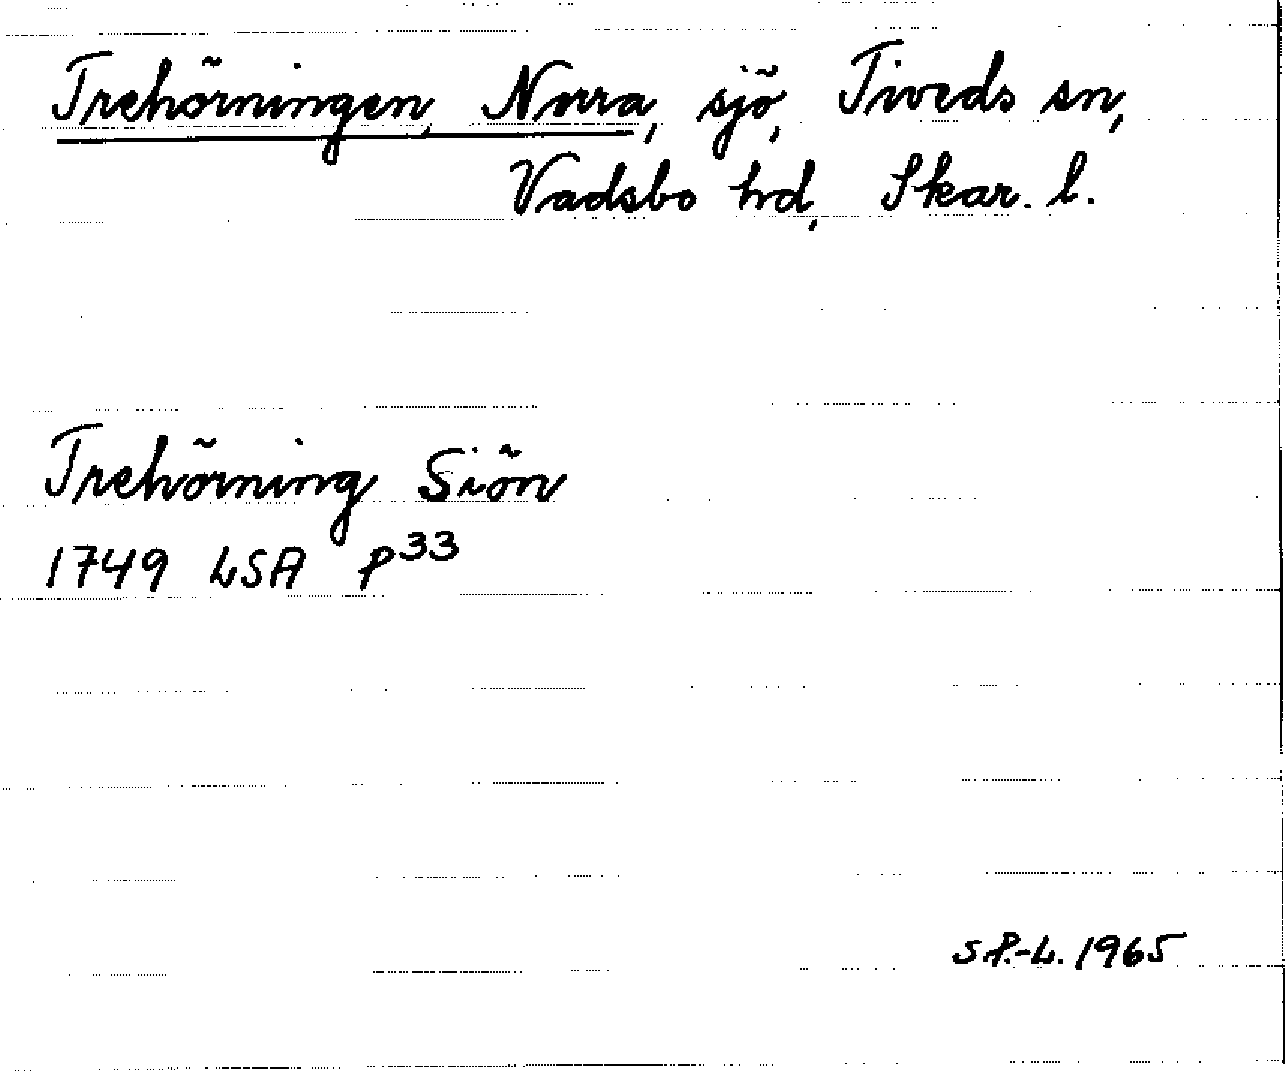 Trehörningen, Norra, sjö, Tiveds sn,
Vadsbo hd, Skar. l.
Trehörning Siön
1749 LSA P33
SP.-L. 1965